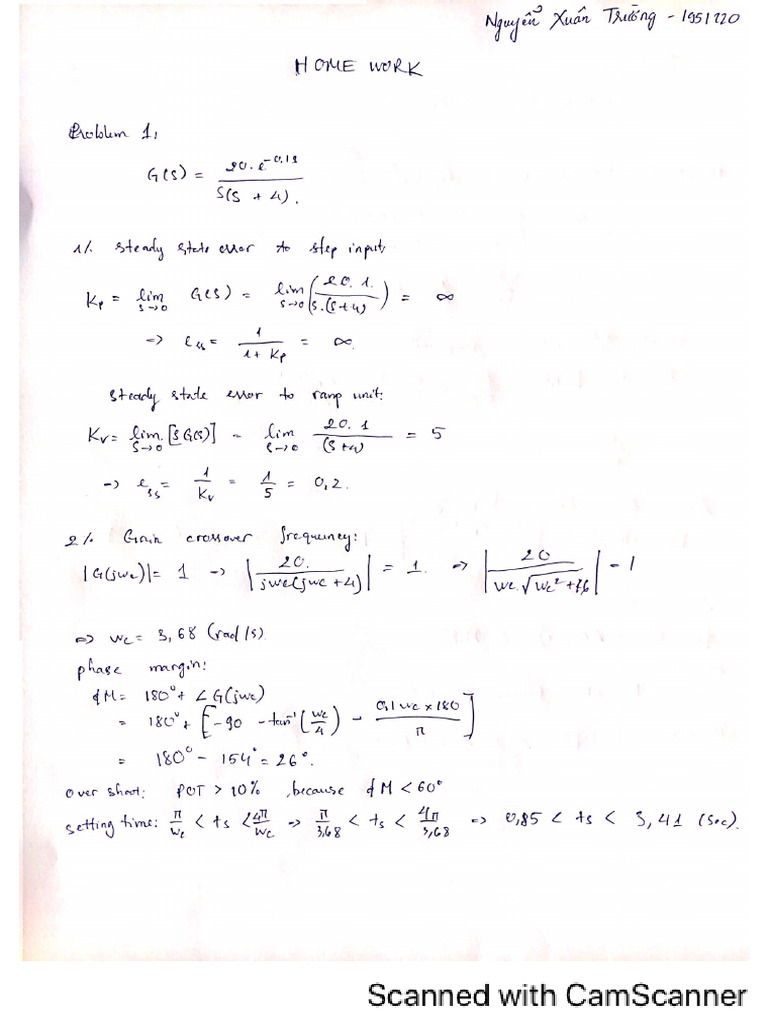 Nguyễn Xuân Trường - 1951220
HOME WORK
Problem 1,
G(s) = 20.e^-0.1s / s(s + 4).
1/. Steady state error to step input,
Kp = lim s→0 G(s) = lim s→0 (20. 1. / s.(s+4)) = ∞
→ ess = 1 / 1+Kp = ∞.
Steady state error to ramp unit:
Kv = lim s→0 [sG(s)] = lim s→0 20. 1 / (s+4) = 5
→ ess = 1/Kv = 1/5 = 0,2.
2/. Gain crossover frequency:
|G(jwc)| = 1 → |20. / jwc(jwc + 4)| = 1. => |20 / wc.√wc²+16| = 1
=> wc = 3,68 (rad/s)
phase margin:
ϕM = 180° + ∠G(jwc)
= 180° + [-90 - tan⁻¹(wc/4) - 0,1wc×180 / π]
= 180° - 154° = 26°.
Over shoot: POT > 10% , because ϕM < 60°
setting time: π/wc < ts < 4π/wc => π/3,68 < ts < 4π/3,68 => 0,85 < ts < 3,41 (sec).
Scanned with CamScanner